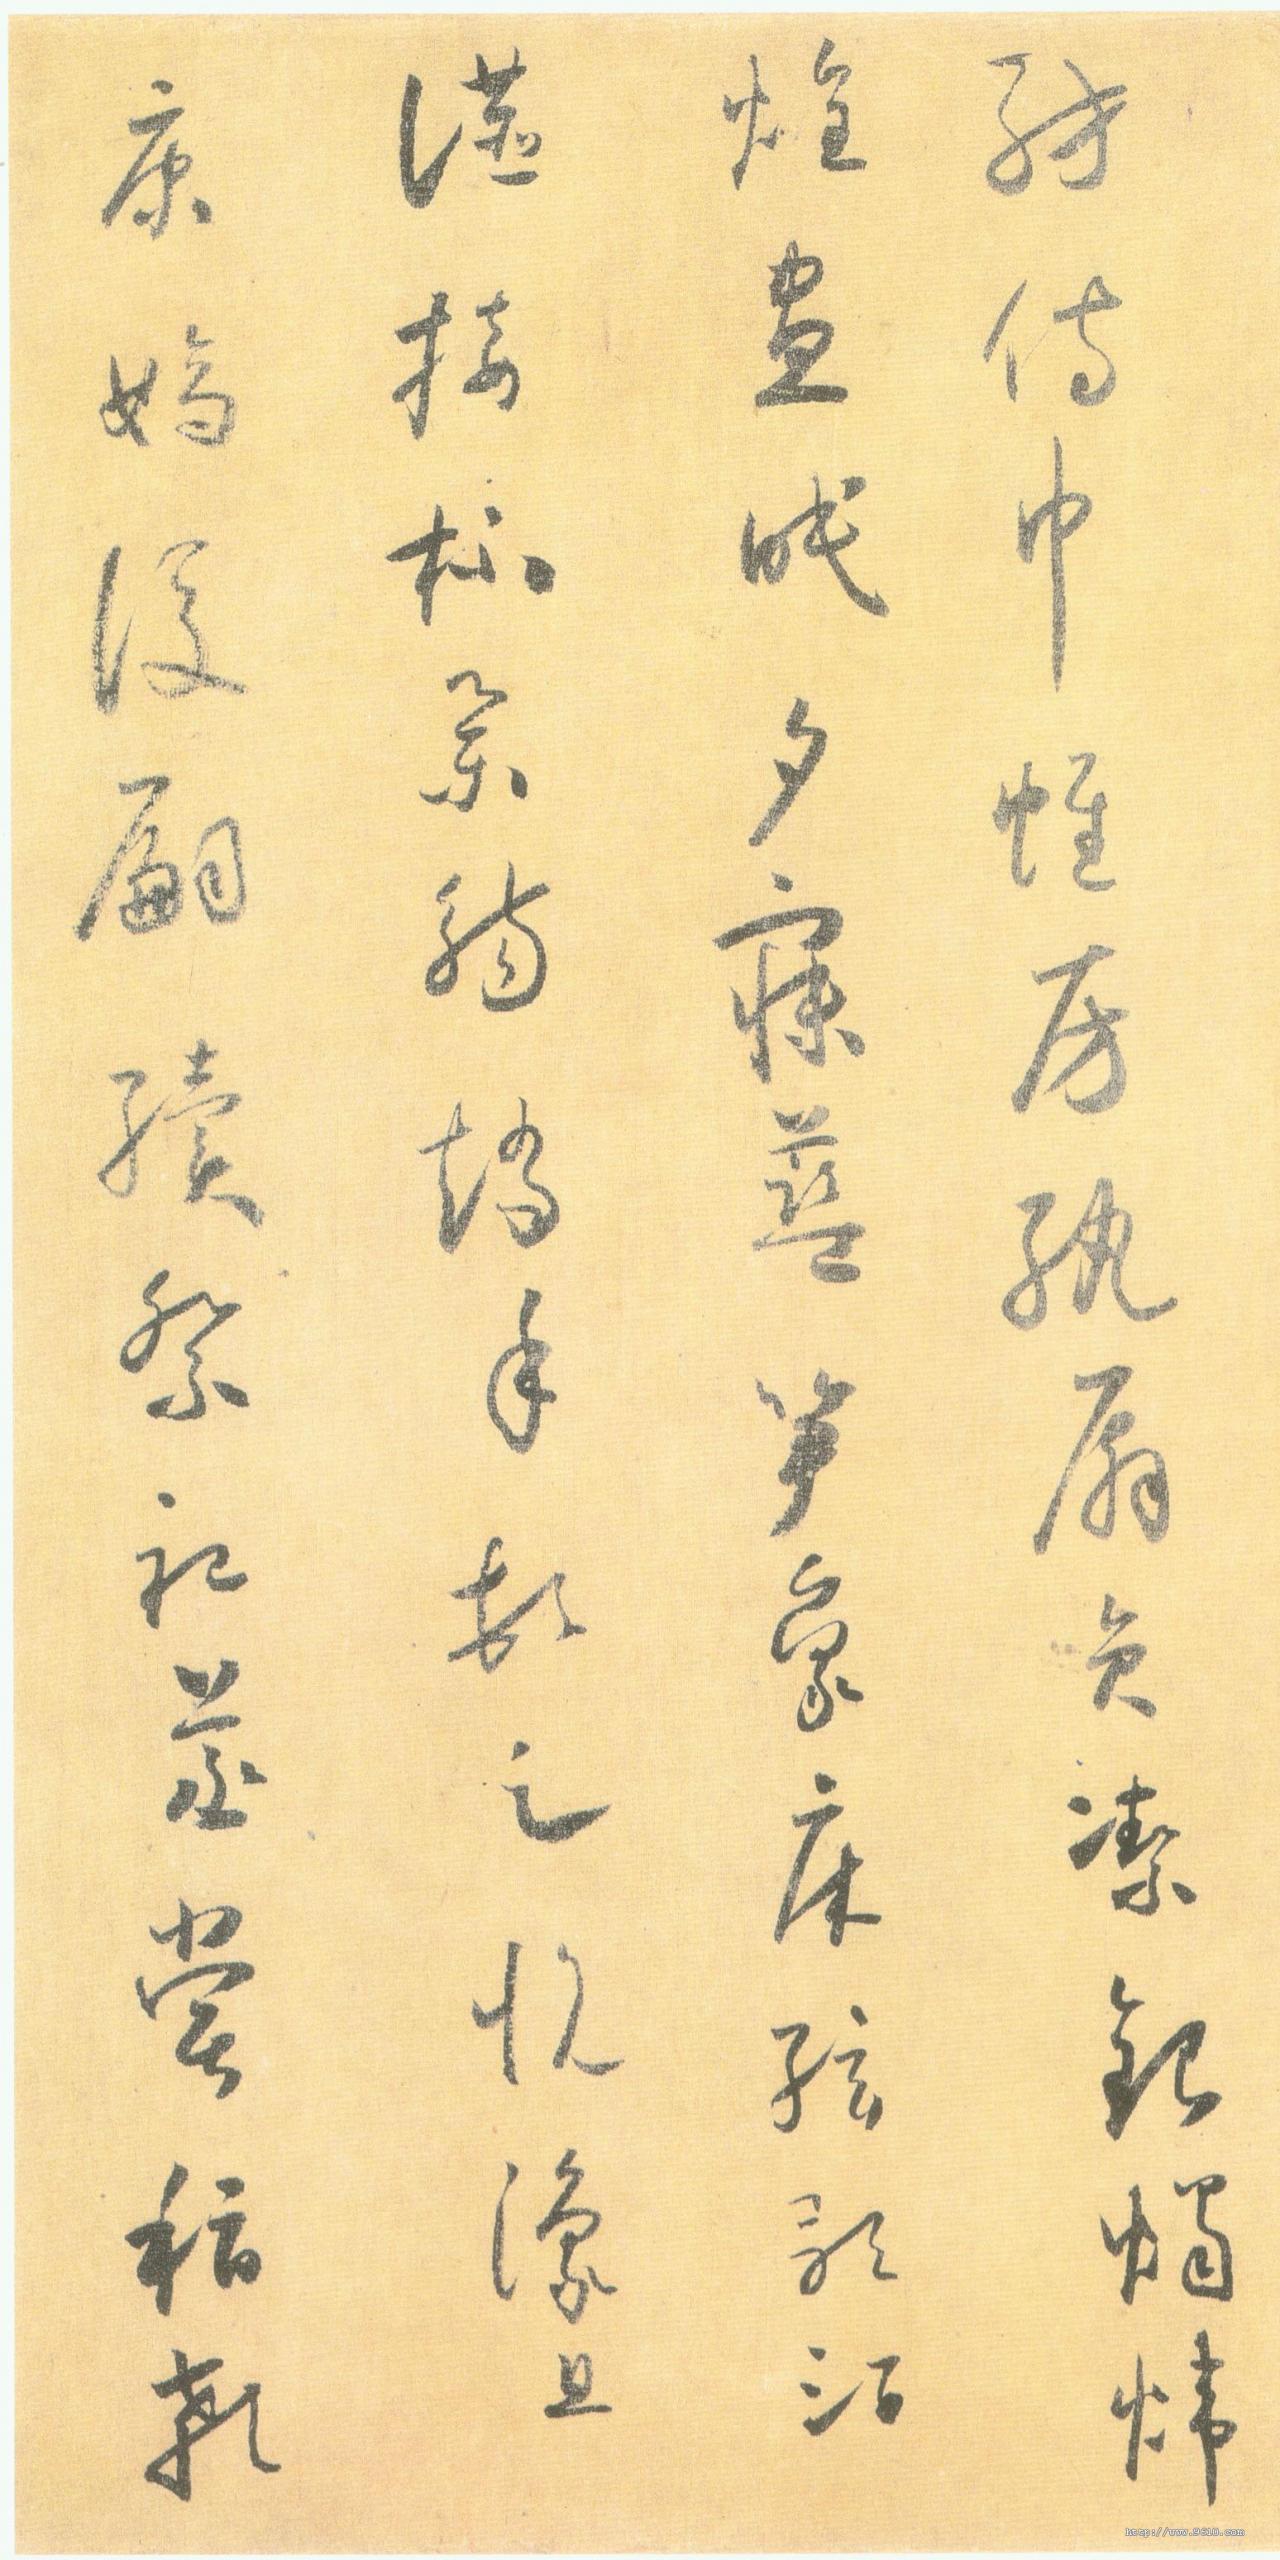 紡侍巾帷房紈扇員潔銀燭煒
煌晝眠夕寐藍笋象床絃歌酒
讌接杯舉觴矯手頓足悅豫且
康嫡後嗣續祭祀蒸嘗稽顙
http://www.9610.com